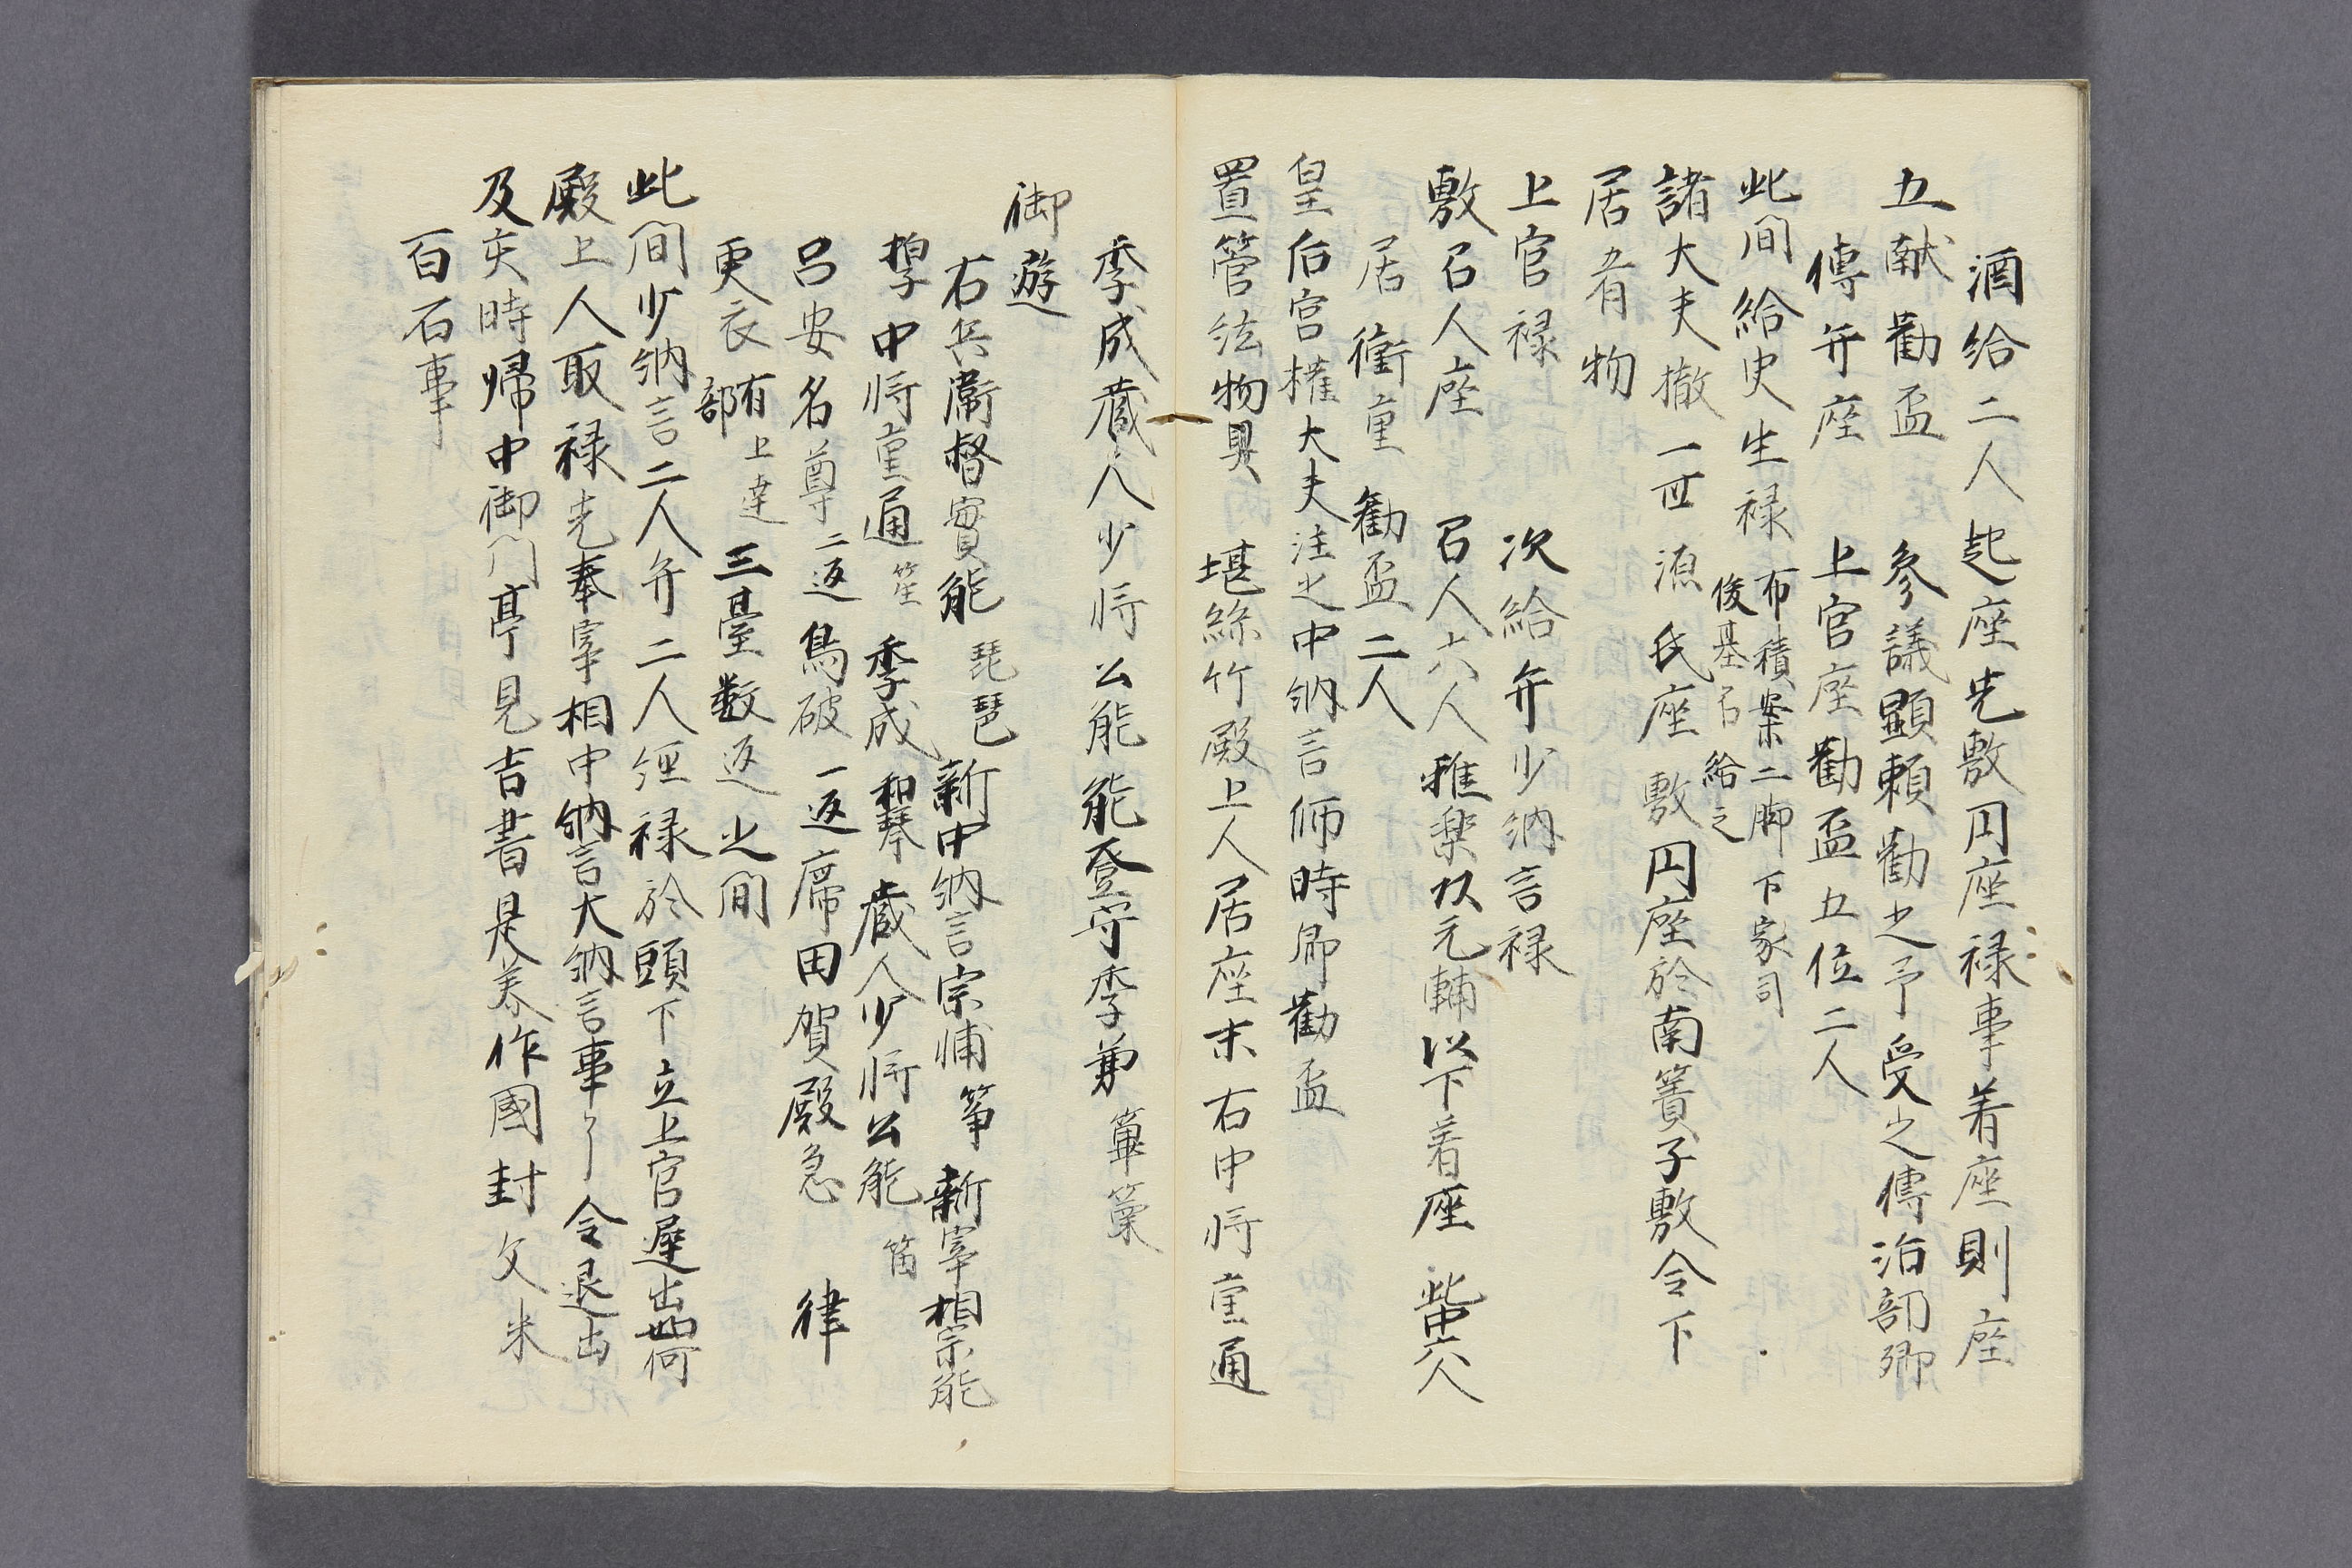 酒給二人起座先敷円座禄事着座則座
五献勸盃　參議顕頼勸之予受之傳治部卿
傳弁座　上官座勸盃五位二人
此間給史生禄 布積案二脚下家司
俊基召給之
諸大夫撤一世源氏座敷円座於南簀子敷令下
居肴物
上官禄　次給弁少納言禄
敷召人座　召人六人雅楽頭元輔以下着座 此中六人
居衝重　勸盃二人
皇后宮権大夫注之中納言師時卿勸盃
置管絃物具　堪絲竹殿上人居座末右中将重通
季成蔵人少将公能能登守季兼 篳篥
御遊
右兵衛督實能 琵琶 新中納言宗輔 筝 新宰相宗能
拍子 中将重通 笙 季成 和琴 蔵人少将公能 笛
呂安名尊 二返 鳥破 一返 席田賀殿急　律
更衣 有上達
部 三臺数返之間
此間少納言二人弁二人経禄於頭下立上官遅出如何
殿上人取禄先奉宰相中納言大納言事了令退出
及亥時帰中御門亭見吉書是美作國封文米
百石事